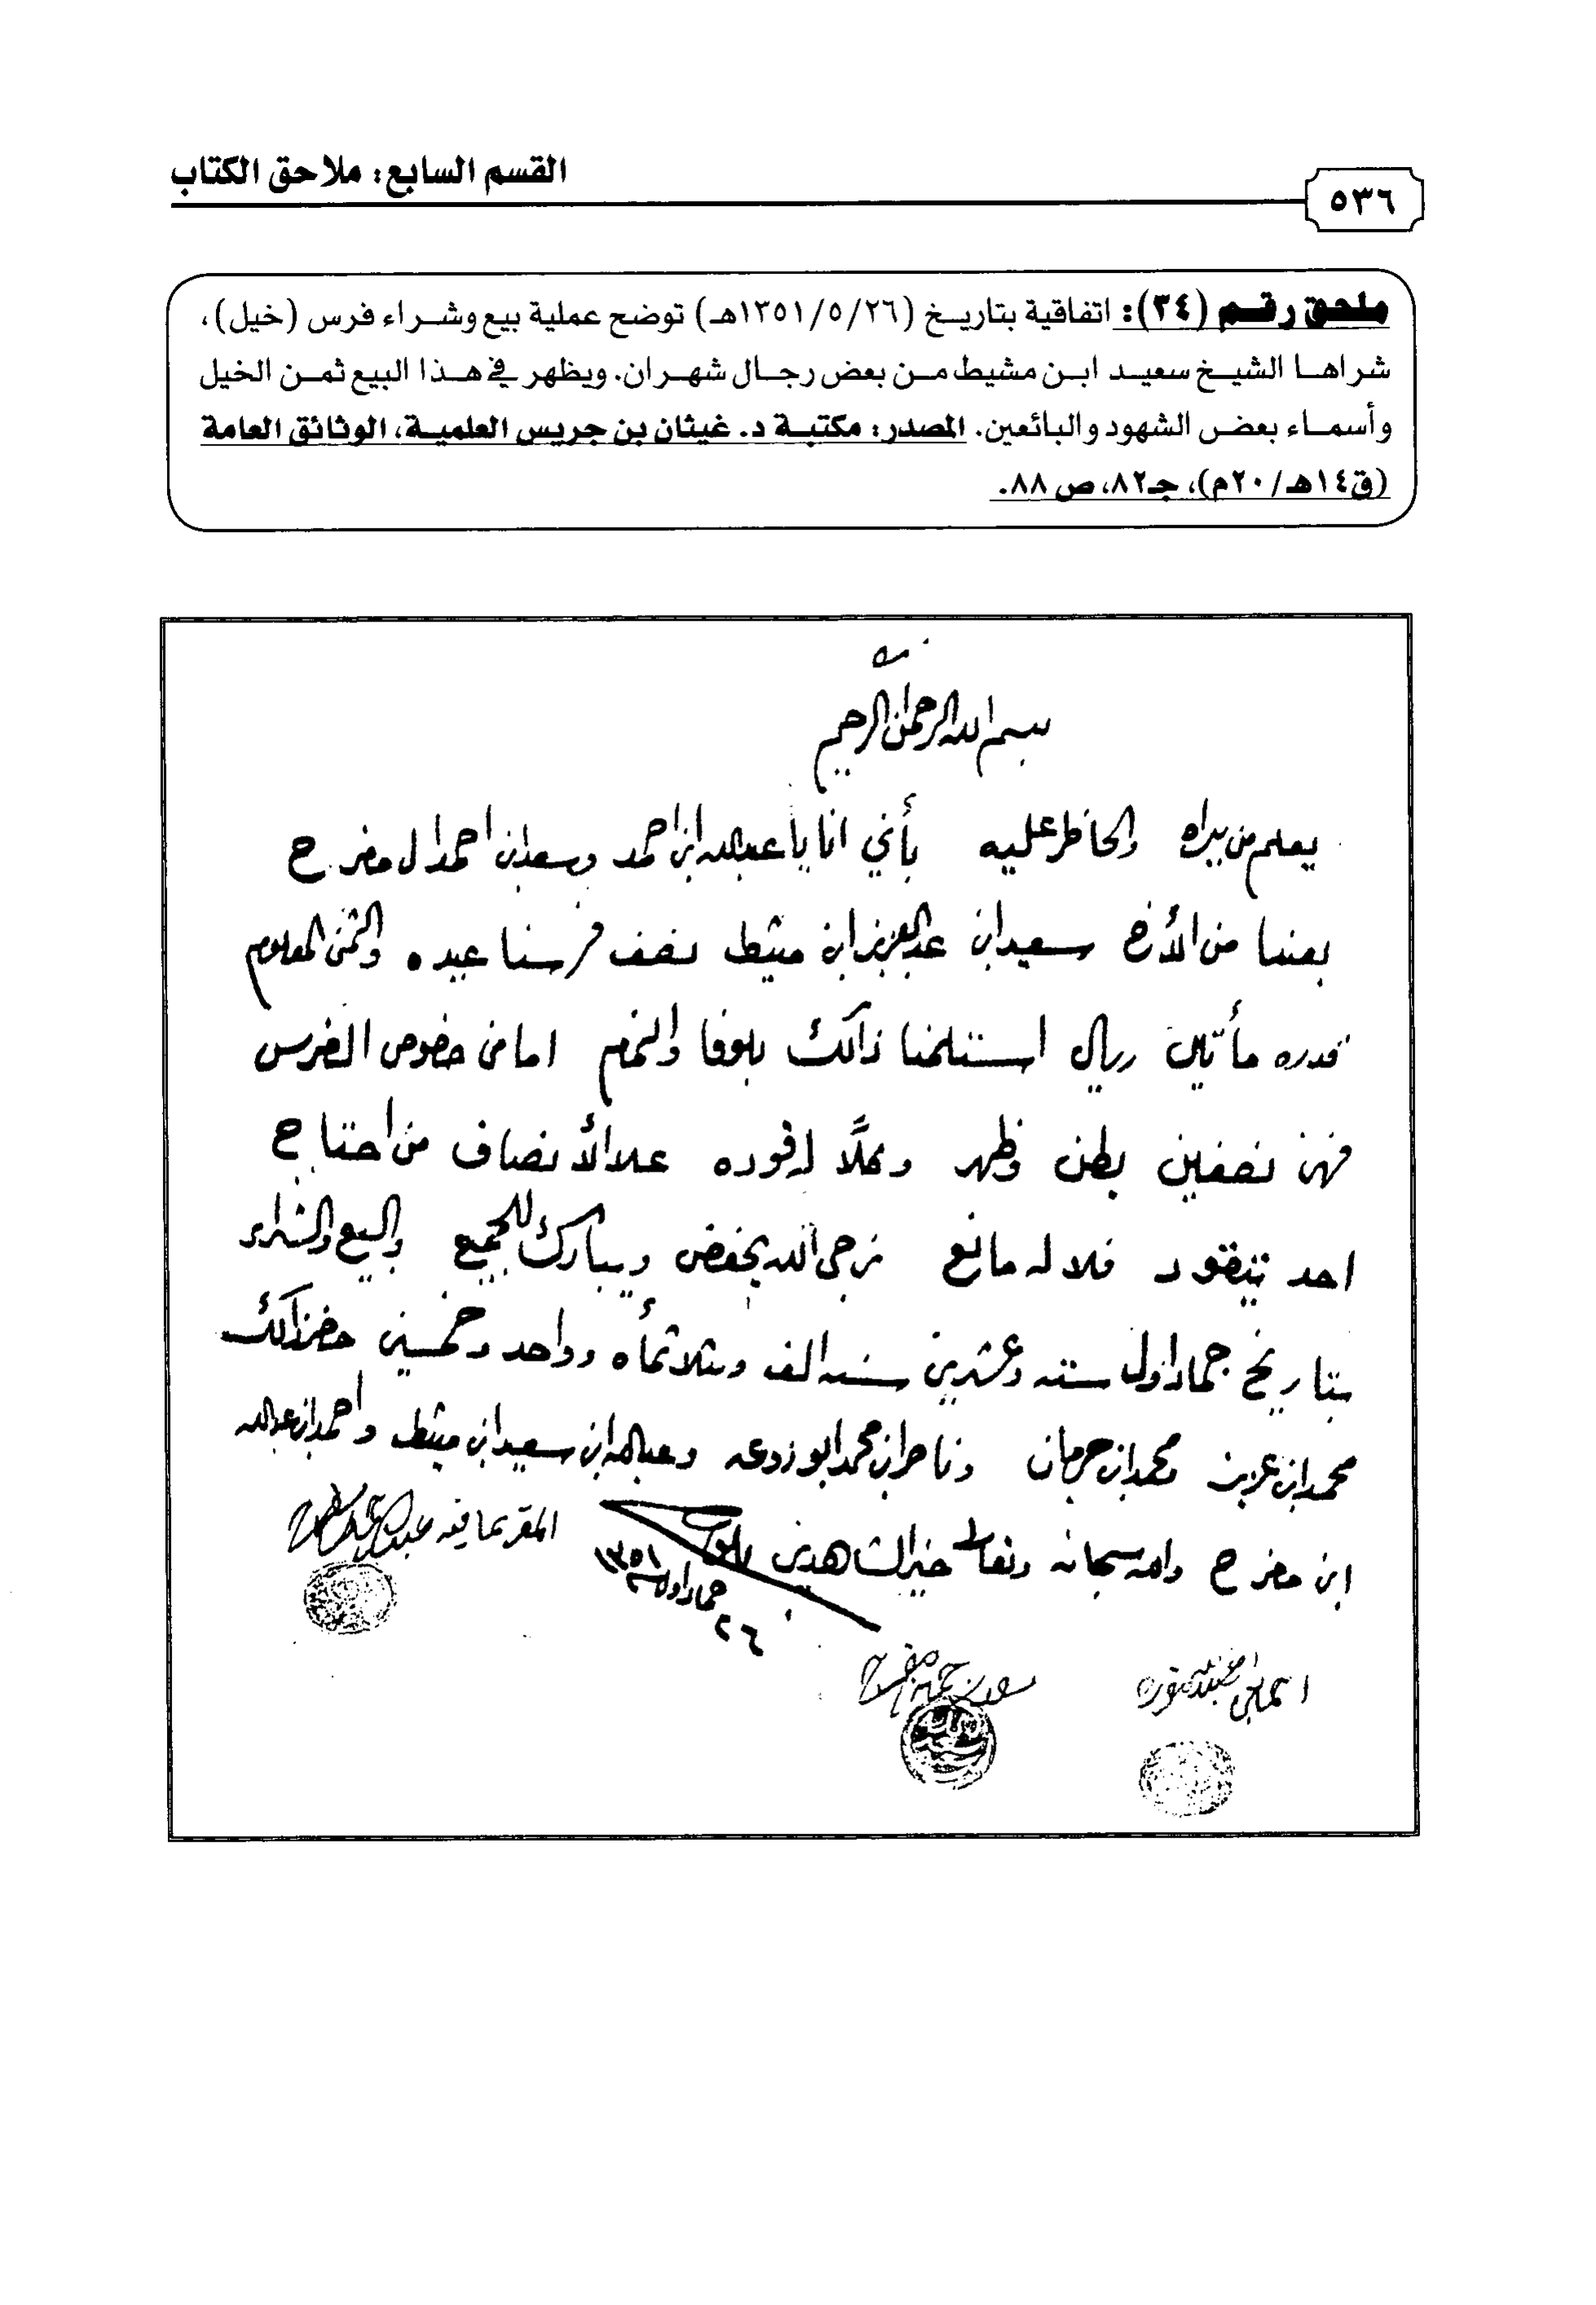 القسم السابع: ملاحق الكتاب
٥٣٦
ملحق رقم (٣٤): اتفاقية بتاريخ (١٣٥١/٥/٢٦هـ) توضح عملية بيع وشراء فرس (خيل)،
شراها الشيخ سعيد ابن مشيط من بعض رجال شهران. ويظهر في هذا البيع ثمن الخيل
وأسماء بعض الشهود والبائعين. المصدر: مكتبة د. غيثان بن جريس العلمية، الوثائق العامة
(ق١٤هـ/٢٠م)، جـ٨٢، ص ٨٨.
بسم الله الرحمن الرحيم
يعلم من يراه والحاظر عليه بأني انا يا عبدالله ابن احمد وسعد ابن احمد ال مفرح
بعنا من الأخ سعيد ابن عبدالعزيز ابن مشيط نصف فرسنا عبيده والثمن المعلوم
قدره مأتين ريال استلمنا ذالك بلوفا والتمام اما من خصوص الفرس
فهن نصفين بطن وظهر وكلاً له قوده علا الأنصاف من احتاج
احد يتقود فلا له مانع نرجى الله يحفض ويبارك للجميع والبيع والشراء
بتاريخ جماد اول سته وعشرين سنه الف وثلاثمأه وواحد وخمسين حضر ذالك
محمد ابن عزيز ومحمد ابن حرمان وناصر ابن محمد ابو زدعه وعبدالله ابن سعيد ابن مشيط واحمد ابن عبدالله
ابن مفرح والله سبحانه وتعالى خير الشاهدين
٢٦ جماد اول سنه ١٣٥١
المقر بما فيه عبدالله بن احمد بن مفرح
سعد بن احمد بن مفرح